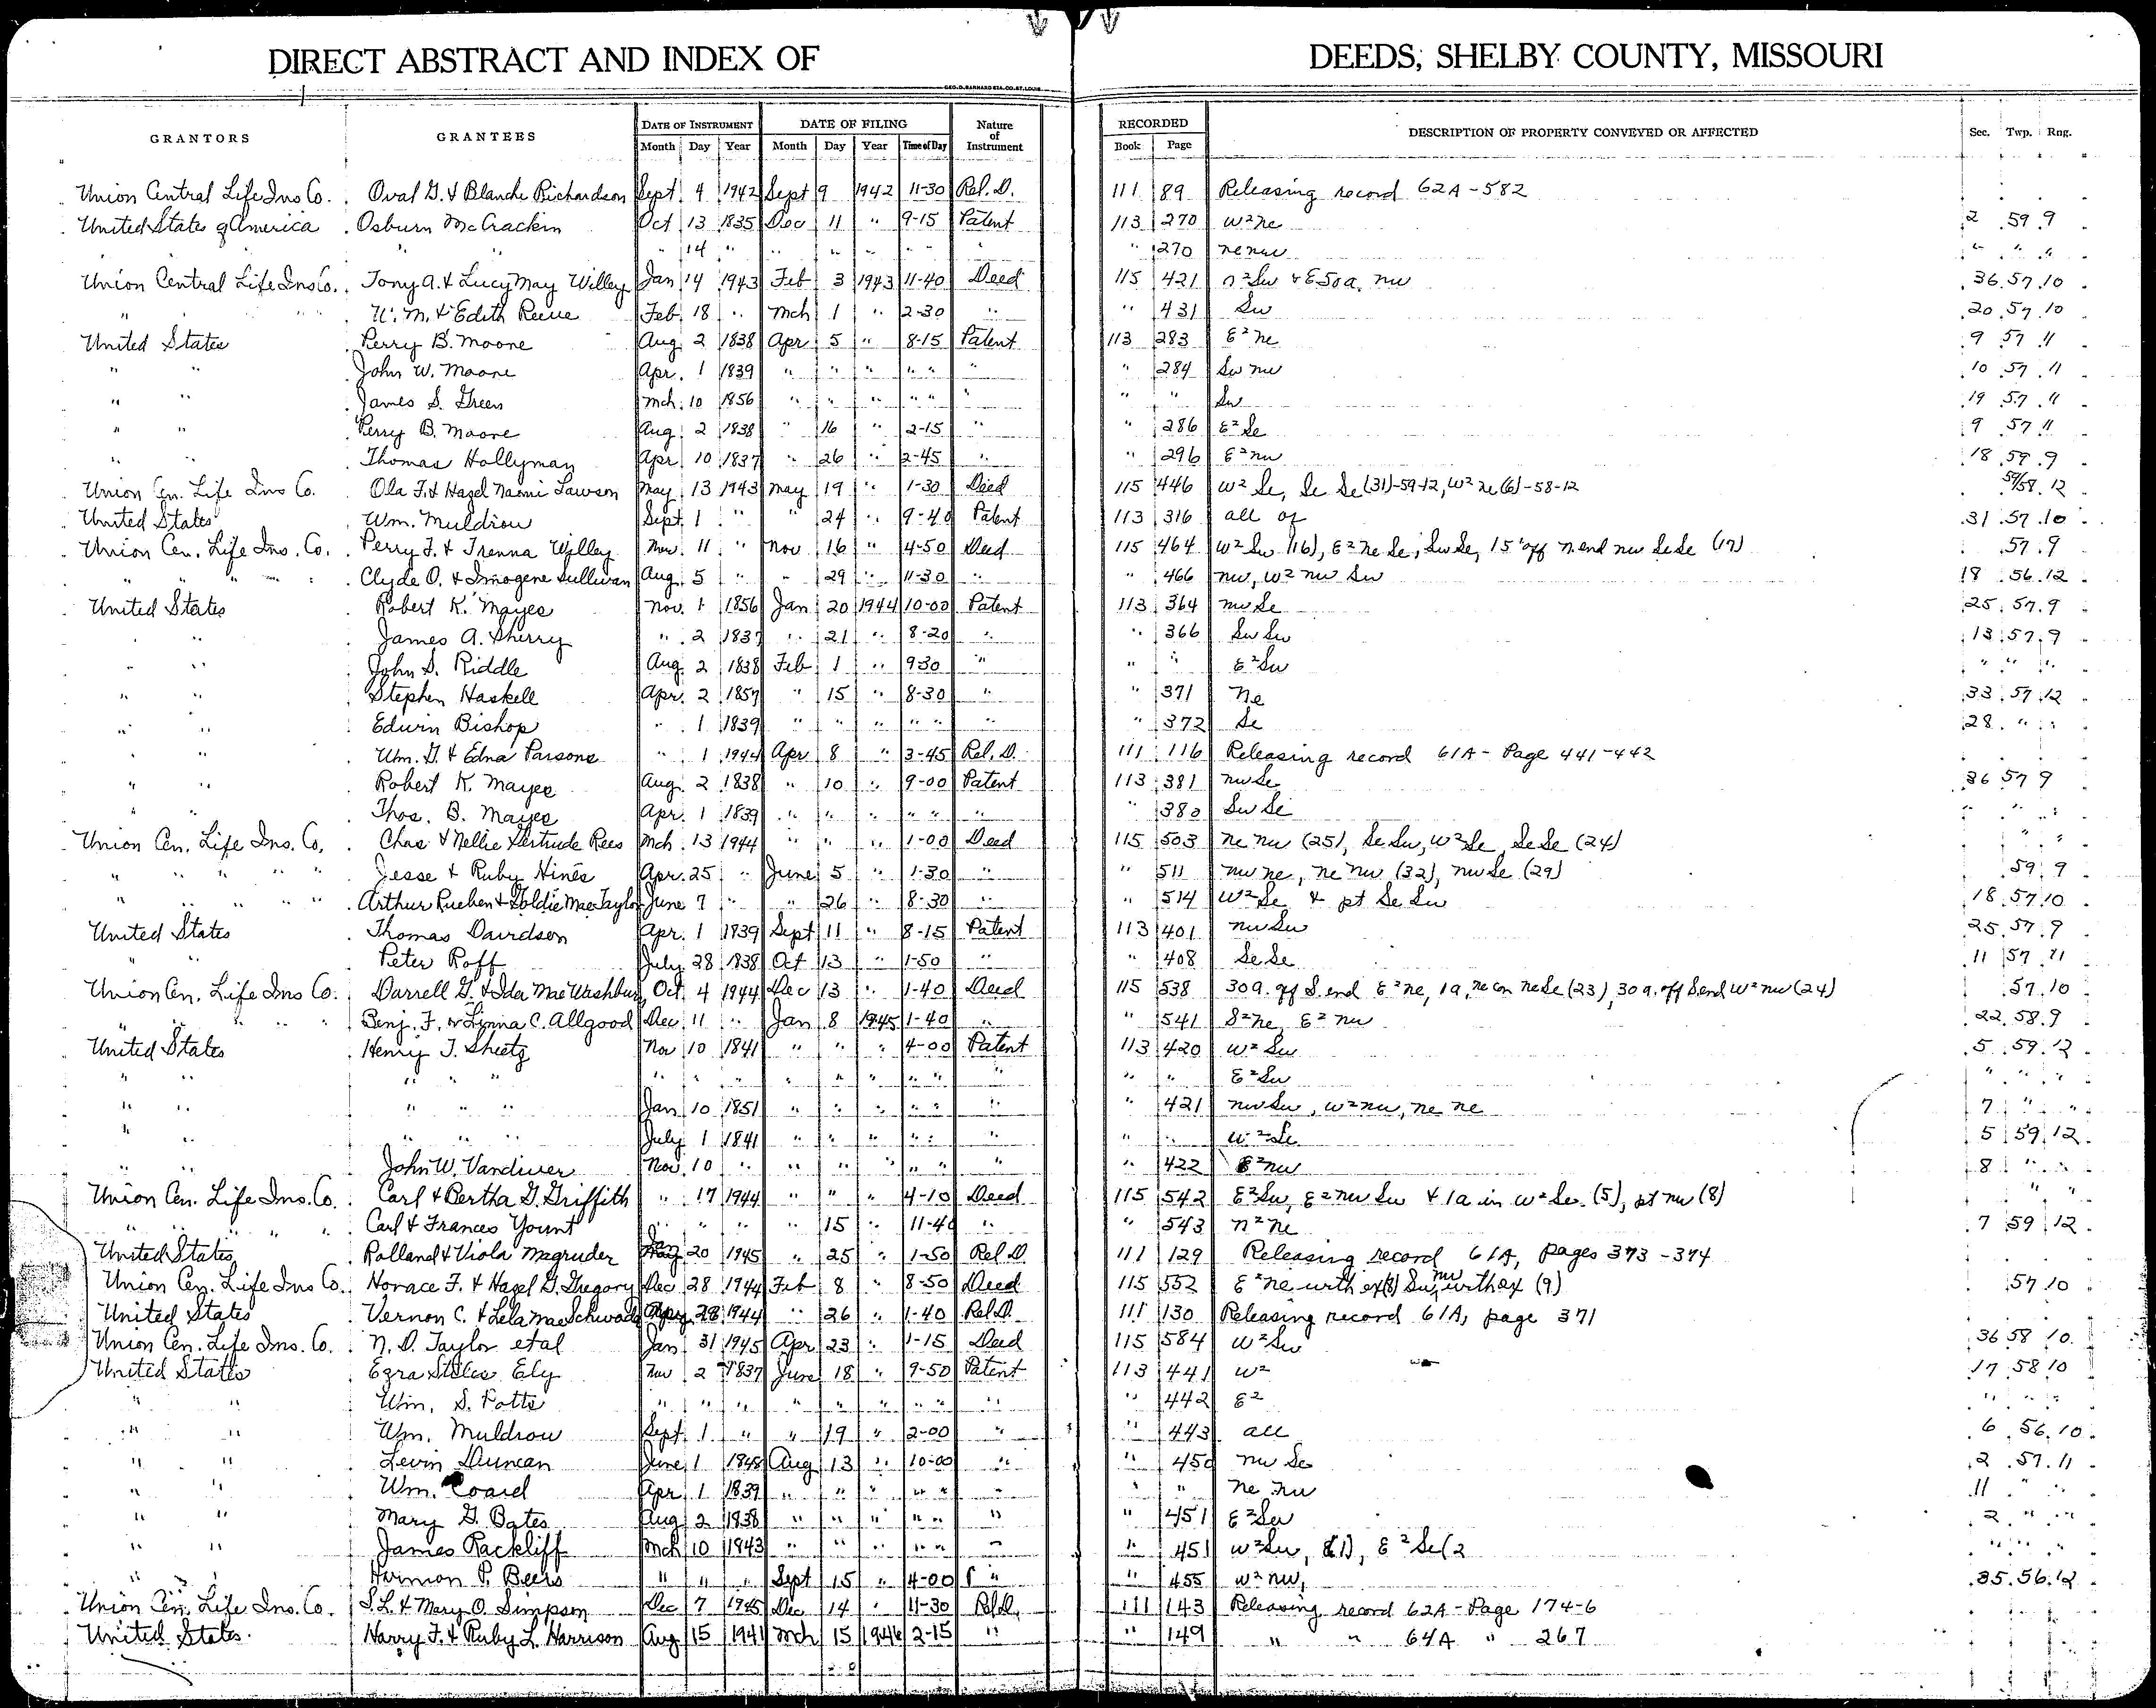 DIRECT ABSTRACT AND INDEX OF DEEDS, SHELBY COUNTY, MISSOURI
GEO. D. BARNARD STA. CO. ST. LOUIS
GRANTORS GRANTEES DATE OF INSTRUMENT DATE OF FILING Nature of Instrument RECORDED DESCRIPTION OF PROPERTY CONVEYED OR AFFECTED Sec. Twp. Rng.
Month Day Year Month Day Year Time of Day Book Page
Union Central Life Ins Co. Oval G. & Blanche Richardson Sept 4 1942 Sept 9 1942 11-30 Rel. D. 111 89 Releasing record 62A-582
United States of America Osburn McCrackin Oct 13 1835 Dec 11 " 9-15 Patent 113 270 W²ne 2 59 9
" " " 14 " " " " " " " 270 nenw " " "
Union Central Life Ins Co. Tony A. & Lucy May Willey Jan 14 1943 Feb 3 1943 11-40 Deed 115 421 n²Sw & E50a. nw 36 57 10
" " " U. M. & Edith Reeve Feb 18 " Mch 1 " 2-30 " " 431 Sw 20 57 10
United States Perry B. Moore Aug 2 1838 Apr 5 " 8-15 Patent 113 283 E²ne 9 57 11
" " John W. Moore Apr. 1 1839 " " " " " " " 284 Sw nw 10 57 11
" " James S. Green Mch. 10 1856 " " " " " " " " Sw 19 57 11
" " Perry B. Moore Aug 2 1838 " 16 " 2-15 " " 286 E²Se 9 57 11
" " Thomas Hollyman Apr 10 1837 " 26 " 2-45 " " 296 E²nw 18 59 9
Union Cen. Life Ins Co. Ola F. & Hazel Naomi Lawson May 13 1943 May 19 " 1-30 Deed 115 446 W² Se, Se Se (31)-59-12, W² ne (6)-58-12 59/58 12
United States Wm. Muldrow Sept. 1 " " 24 " 9-40 Patent 113 316 all of 31 57 10
Union Cen. Life Ins. Co. Perry F. & Trenna Willey Nov. 11 " Nov 16 " 4-50 Deed 115 464 W² Sw (16), E² ne Se, Sw Se, 15' off n end nw Se Se (17) 57 9
" " " " Clyde O. & Imogene Sullivan Aug. 5 " " 29 " 11-30 " " 466 nw, W² nw Sw 18 56 12
United States Robert K. Mayes Nov. 1 1856 Jan 20 1944 10-00 Patent 113 364 nw Se 25 57 9
" " James A. Sherry " 2 1837 " 21 " 8-20 " " 366 Sw Sw 13 57 9
" " John S. Riddle Aug. 2 1838 Feb 1 " 930 " " " E²Sw " " "
" " Stephen Haskell Apr. 2 1857 " 15 " 8-30 " " 371 ne 33 57 12
" " Edwin Bishop " 1 1839 " " " " " " " 372 Se 28 " "
" " Wm. G. & Edna Parsons " 1 1944 Apr 8 " 3-45 Rel. D. 111 116 Releasing record 61A - Page 441-442
" " Robert K. Mayes Aug. 2 1838 " 10 " 9-00 Patent 113 381 nw Se 36 57 9
" " Thos. B. Mayes Apr. 1 1839 " " " " " " " 380 Sw Se " " "
Union Cen. Life Ins. Co. Chas & Nellie Gertrude Rees Mch. 13 1944 " " " 1-00 Deed 115 503 ne nw (25), Se Sw, W²Se, Se Se (24) " "
" " " " Jesse & Ruby Hines Apr. 25 " June 5 " 1-30 " " 511 nw ne, ne nw (32), nw Se (29) 59 9
" " " " Arthur Rueben & Goldie Mae Taylor June 7 " " 26 " 8-30 " " 514 W²Se & pt Se Sw 18 57 10
United States Thomas Davidson Apr. 1 1839 Sept 11 " 8-15 Patent 113 401 nw Sw 25 57 9
" " Peter Roff July 28 1838 Oct 13 " 1-50 " " 408 Se Se 11 57 11
Union Cen. Life Ins Co. Darrell G. & Ida Mae Washburn Oct. 4 1944 Dec 13 " 1-40 Deed 115 538 30a. off S. end E²ne, 1a, ne cor ne Se (23), 30a. off S end W² nw (24) 57 10
" " " " Benj. F. or Linna C. Allgood Dec 11 " Jan 8 1945 1-40 " " 541 S²ne, E²nw 22 58 9
United States Henry J. Sheetz Nov 10 1841 " " " 4-00 Patent 113 420 W² Sw 5 59 12
" " " " " " " " " " " " " " " " E²Sw " " "
" " " " " Jan 10 1851 " " " " " " " 421 nw Sw, W²nw, ne ne 7 " "
" " " " " July 1 1841 " " " " " " " " W²Se 5 59 12
" " John W. Vandiver Nov. 10 " " " " " " " " 422 E²nw 8 " "
Union Cen. Life Ins. Co. Carl & Bertha G. Griffith " 17 1944 " " " 4-10 Deed 115 542 E²Sw, E²nw Sw & 1a in W²Se (5), pt nw (8) " "
" " " " Carl & Frances Yount " " " " 15 " 11-40 " " 543 n²ne 7 59 12
United States Rolland & Viola Magruder 20 1945 " 25 " 1-50 Rel D. 111 129 Releasing record 61A, pages 373-374
Union Cen. Life Ins Co. Horace F. & Hazel G. Gregory Dec 28 1944 Feb 8 " 8-50 Deed 115 552 E²ne with ex (8) Sw nw with ex (9) 57 10
United States Vernon C. & Lela Mae Schwada 28 1944 " 26 " 1-40 Rel. D. 111 130 Releasing record 61A, page 371
Union Cen. Life Ins. Co. N. D. Taylor et al Jan 31 1945 Apr 23 " 1-15 Deed 115 584 W²Sw 36 58 10
United States Ezra Stiles Ely Nov 2 1837 June 18 " 9-50 Patent 113 441 W² 17 58 10
" " Wm. S. Potts " " " " " " " " " " 442 E² " " "
" " Wm. Muldrow Sept. 1 " " 19 " 2-00 " " 443 all 6 56 10
" " Levin Duncan June 1 1848 Aug 13 " 10-00 " " 450 nw Se 2 57 11
" " Wm. Coard Apr 1 1839 " " " " " " " " ne nw 11 " "
" " Mary G. Bates Aug 2 1838 " " " " " " " 451 E²Sw 2 " "
" " James Rackliff Mch 10 1843 " " " " " " " 451 W²Sw, (1), E²Se(2 " " "
" " Hermon P. Beers " " " Sept 15 " 4-00 " " 455 W²NW, 35 56 12
Union Cen. Life Ins. Co. S. L. & Mary O. Simpson Dec 7 1945 Dec 14 " 11-30 Rel D. 111 143 Releasing record 62A - Page 174-6
United States Harry F. & Ruby L. Harrison Aug 15 1941 Mch 15 1946 2-15 " " 149 " " 64A " 267